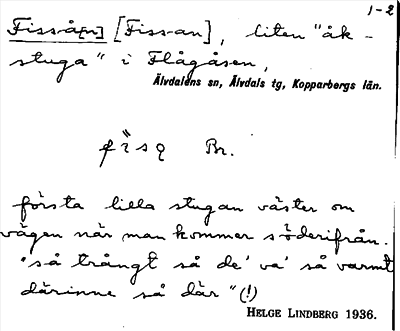 1-2
Fisså[n] [Fiss-an], liten "åk-
stuga" i Flågåsen,
Älvdalens sn, Älvdals tg, Kopparbergs län.
Br.
första lilla stugan väster om
vägen när man kommer söderifrån.
"så trångt så de' va' så varmt
därinne så där" (!)
HELGE LINDBERG 1936.